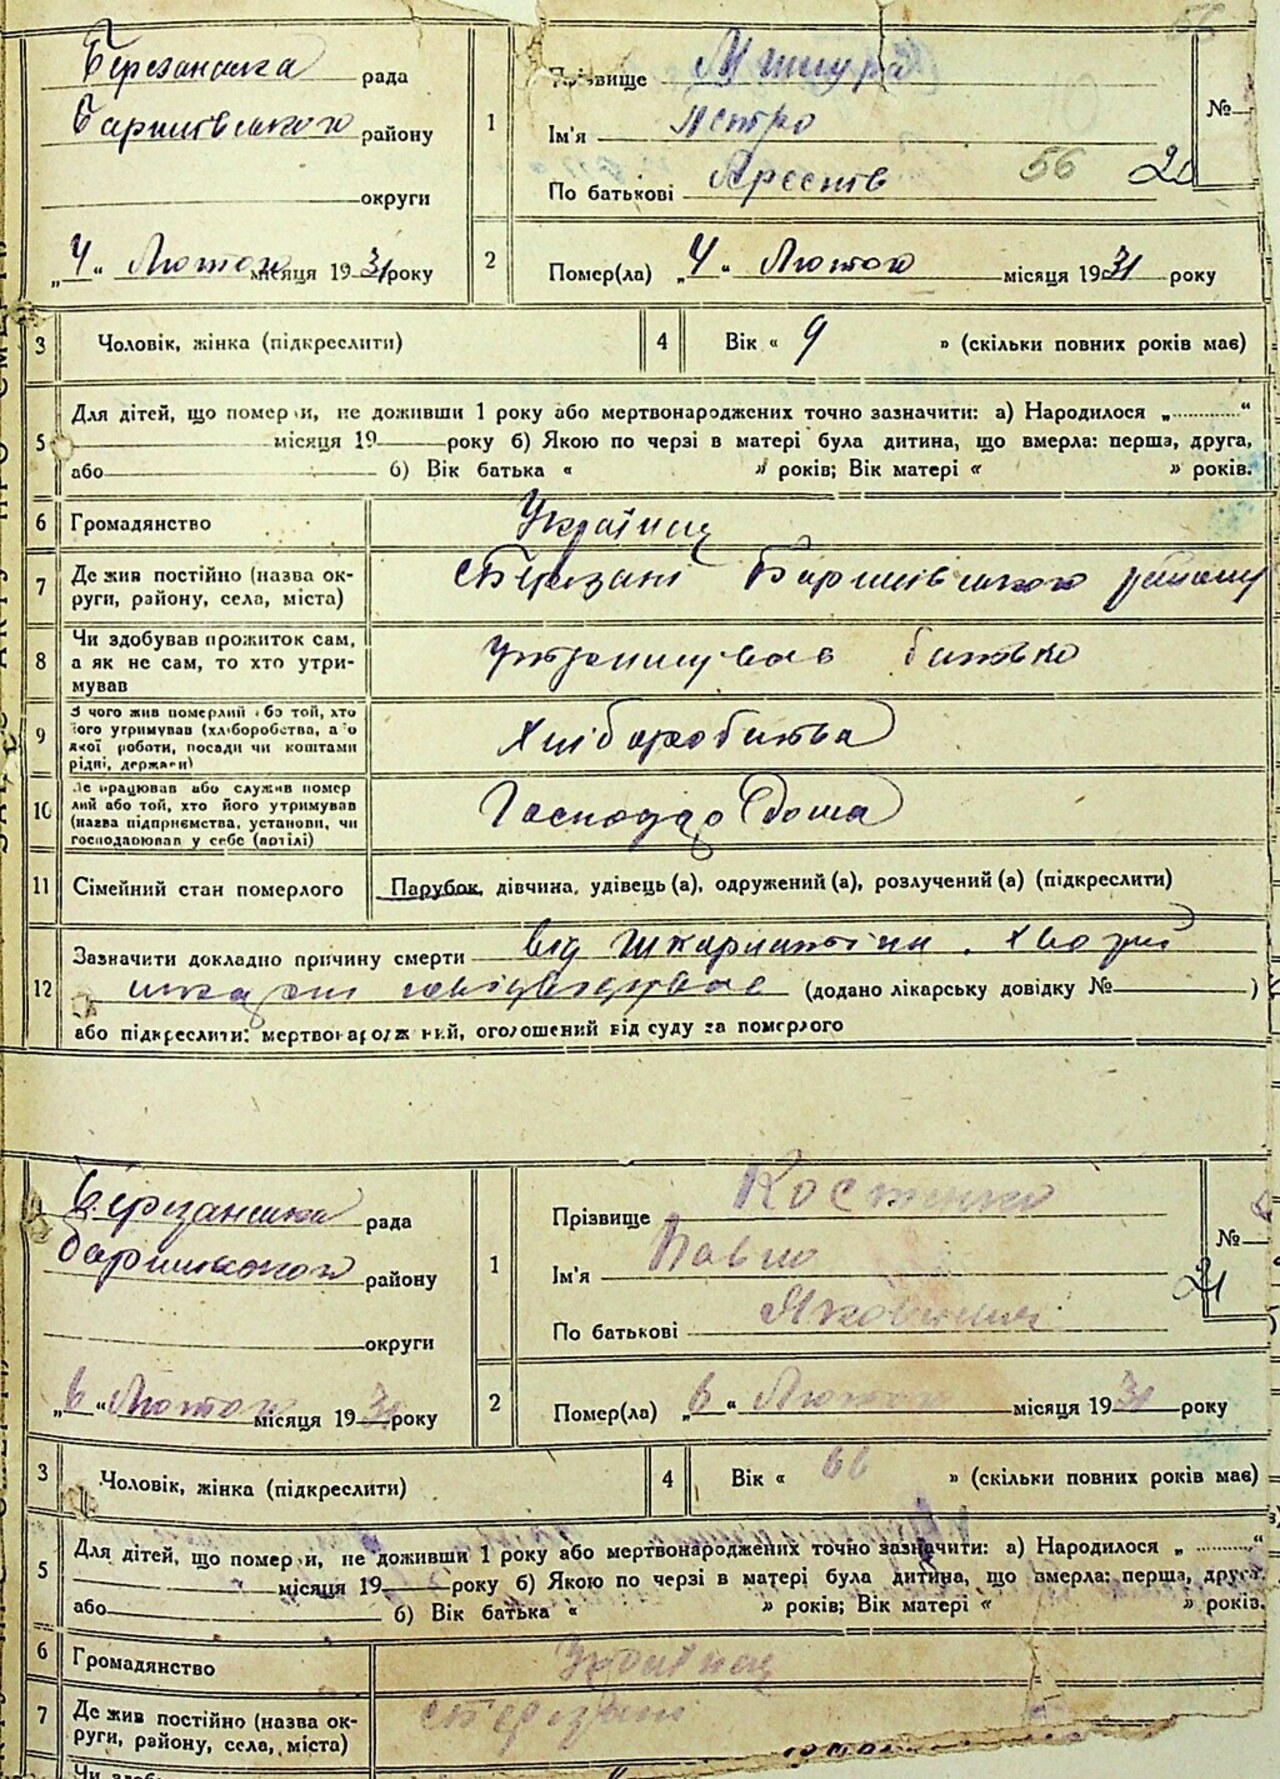 56
Березанська рада
Баришівського району
округи
„4“ Лютого місяця 1931 року
1
Прізвище
Ім'я Петро
По батькові
56 20
№
2
Помер(ла) „4“ Лютого місяця 1931 року
3 Чоловік, жінка (підкреслити)
4 Вік « 9 » (скільки повних років має)
5
Для дітей, що померли, не доживши 1 року або мертвонароджених точно зазначити: а) Народилося „ “
місяця 19 року б) Якою по черзі в матері була дитина, що вмерла: перша, друга,
або б) Вік батька « » років; Вік матері « » років.
6 Громадянство Українець
7 Де жив постійно (назва ок-
руги, району, села, міста)
с Березані Баришівського району
8 Чи здобував прожиток сам,
а як не сам, то хто утри-
мував
утримував батько
9 З чого жив померлий або той, хто
його утримував (хліборобства, або
якої роботи, посади чи коштами
рідні, держави)
Хліборобства
10 Де працював або служив помер
лий або той, хто його утримував
(назва підприємства, установи, чи
господарював у себе (артілі)
Господар дома
11 Сімейний стан померлого Парубок, дівчина, удівець (а), одружений (а), розлучений (а) (підкреслити)
12
Зазначити докладно причину смерти від шкарлатіни,
(додано лікарську довідку № )
або підкреслити: мертвонароджений, оголошений від суду за померлого
Березанська рада
району
округи
„6“ Лютого місяця 1931 року
1
Прізвище Костенко
Ім'я Павло
По батькові Якович
№
21
2
Помер(ла) „6“ Лютого місяця 1931 року
3 Чоловік, жінка (підкреслити)
4 Вік « 66 » (скільки повних років має)
5
Для дітей, що померли, не доживши 1 року або мертвонароджених точно зазначити: а) Народилося „ “
місяця 19 року б) Якою по черзі в матері була дитина, що вмерла: перша, друга,
або б) Вік батька « » років; Вік матері « » років.
6 Громадянство Українець
7 Де жив постійно (назва ок-
руги, району, села, міста)
с Березані